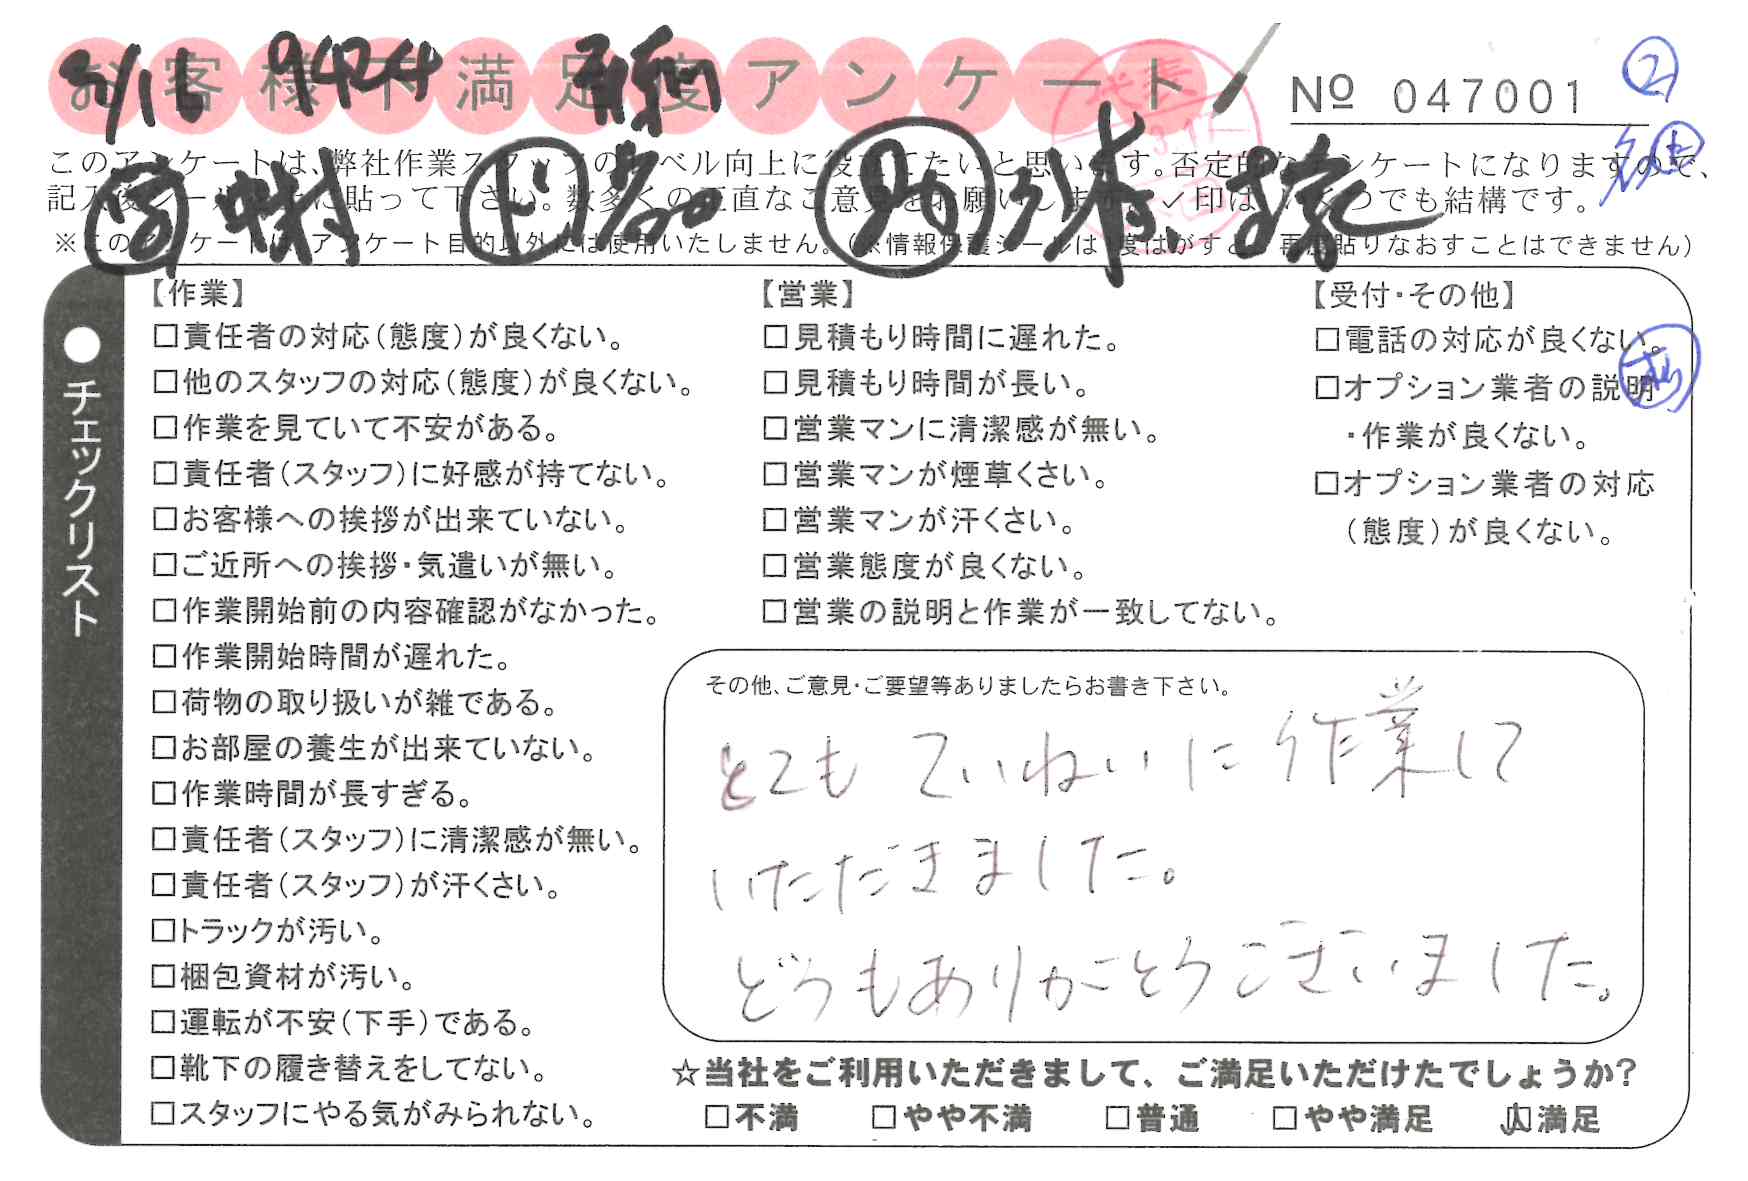 お客様不満足度アンケート
№ 047001
②
このアンケートは、弊社作業スタッフのレベル向上に役立てたいと思います。否定的なアンケートになりますので、
記入後シールを上に貼って下さい。数多くの正直なご意見をお願いします。✓印は、いくつでも結構です。
※このアンケートは、アンケート目的以外には使用いたしません。(※情報保護シールは1度はがすと、再度貼りなおすことはできません)
●チェックリスト
【作業】
□責任者の対応(態度)が良くない。
□他のスタッフの対応(態度)が良くない。
□作業を見ていて不安がある。
□責任者(スタッフ)に好感が持てない。
□お客様への挨拶が出来ていない。
□ご近所への挨拶・気遣いが無い。
□作業開始前の内容確認がなかった。
□作業開始時間が遅れた。
□荷物の取り扱いが雑である。
□お部屋の養生が出来ていない。
□作業時間が長すぎる。
□責任者(スタッフ)に清潔感が無い。
□責任者(スタッフ)が汗くさい。
□トラックが汚い。
□梱包資材が汚い。
□運転が不安(下手)である。
□靴下の履き替えをしてない。
□スタッフにやる気がみられない。
【営業】
□見積もり時間に遅れた。
□見積もり時間が長い。
□営業マンに清潔感が無い。
□営業マンが煙草くさい。
□営業マンが汗くさい。
□営業態度が良くない。
□営業の説明と作業が一致してない。
【受付・その他】
□電話の対応が良くない。
□オプション業者の説明
・作業が良くない。
□オプション業者の対応
(態度)が良くない。
その他、ご意見・ご要望等ありましたらお書き下さい。
とてもていねいに作業して
いただきました。
どうもありがとうございました。
☆当社をご利用いただきまして、ご満足いただけたでしょうか?
□不満 □やや不満 □普通 □やや満足 ☑満足